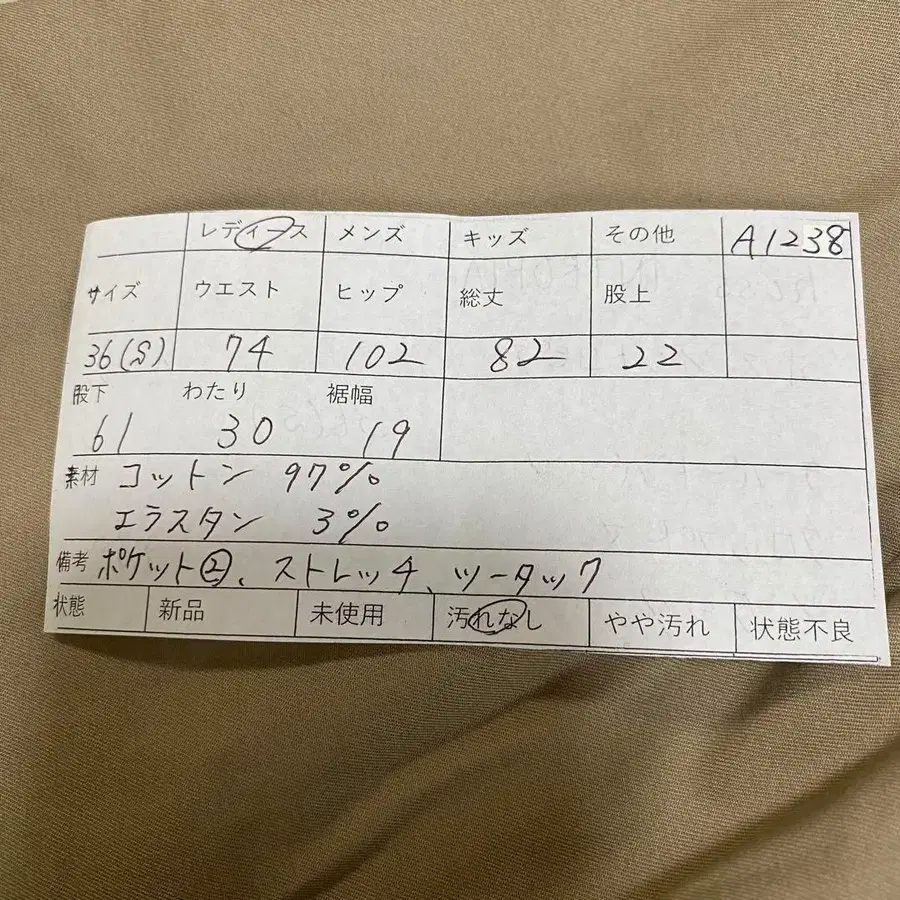 レディース メンズ キッズ その他 A1238
サイズ ウエスト ヒップ 総丈 股上
36(S) 74 102 82 22
股下 わたり 裾幅
61 30 19
素材 コットン 97%
エラスタン 3%
備考 ポケット②、ストレッチ、ツータック
状態 新品 未使用 汚れなし やや汚れ 状態不良